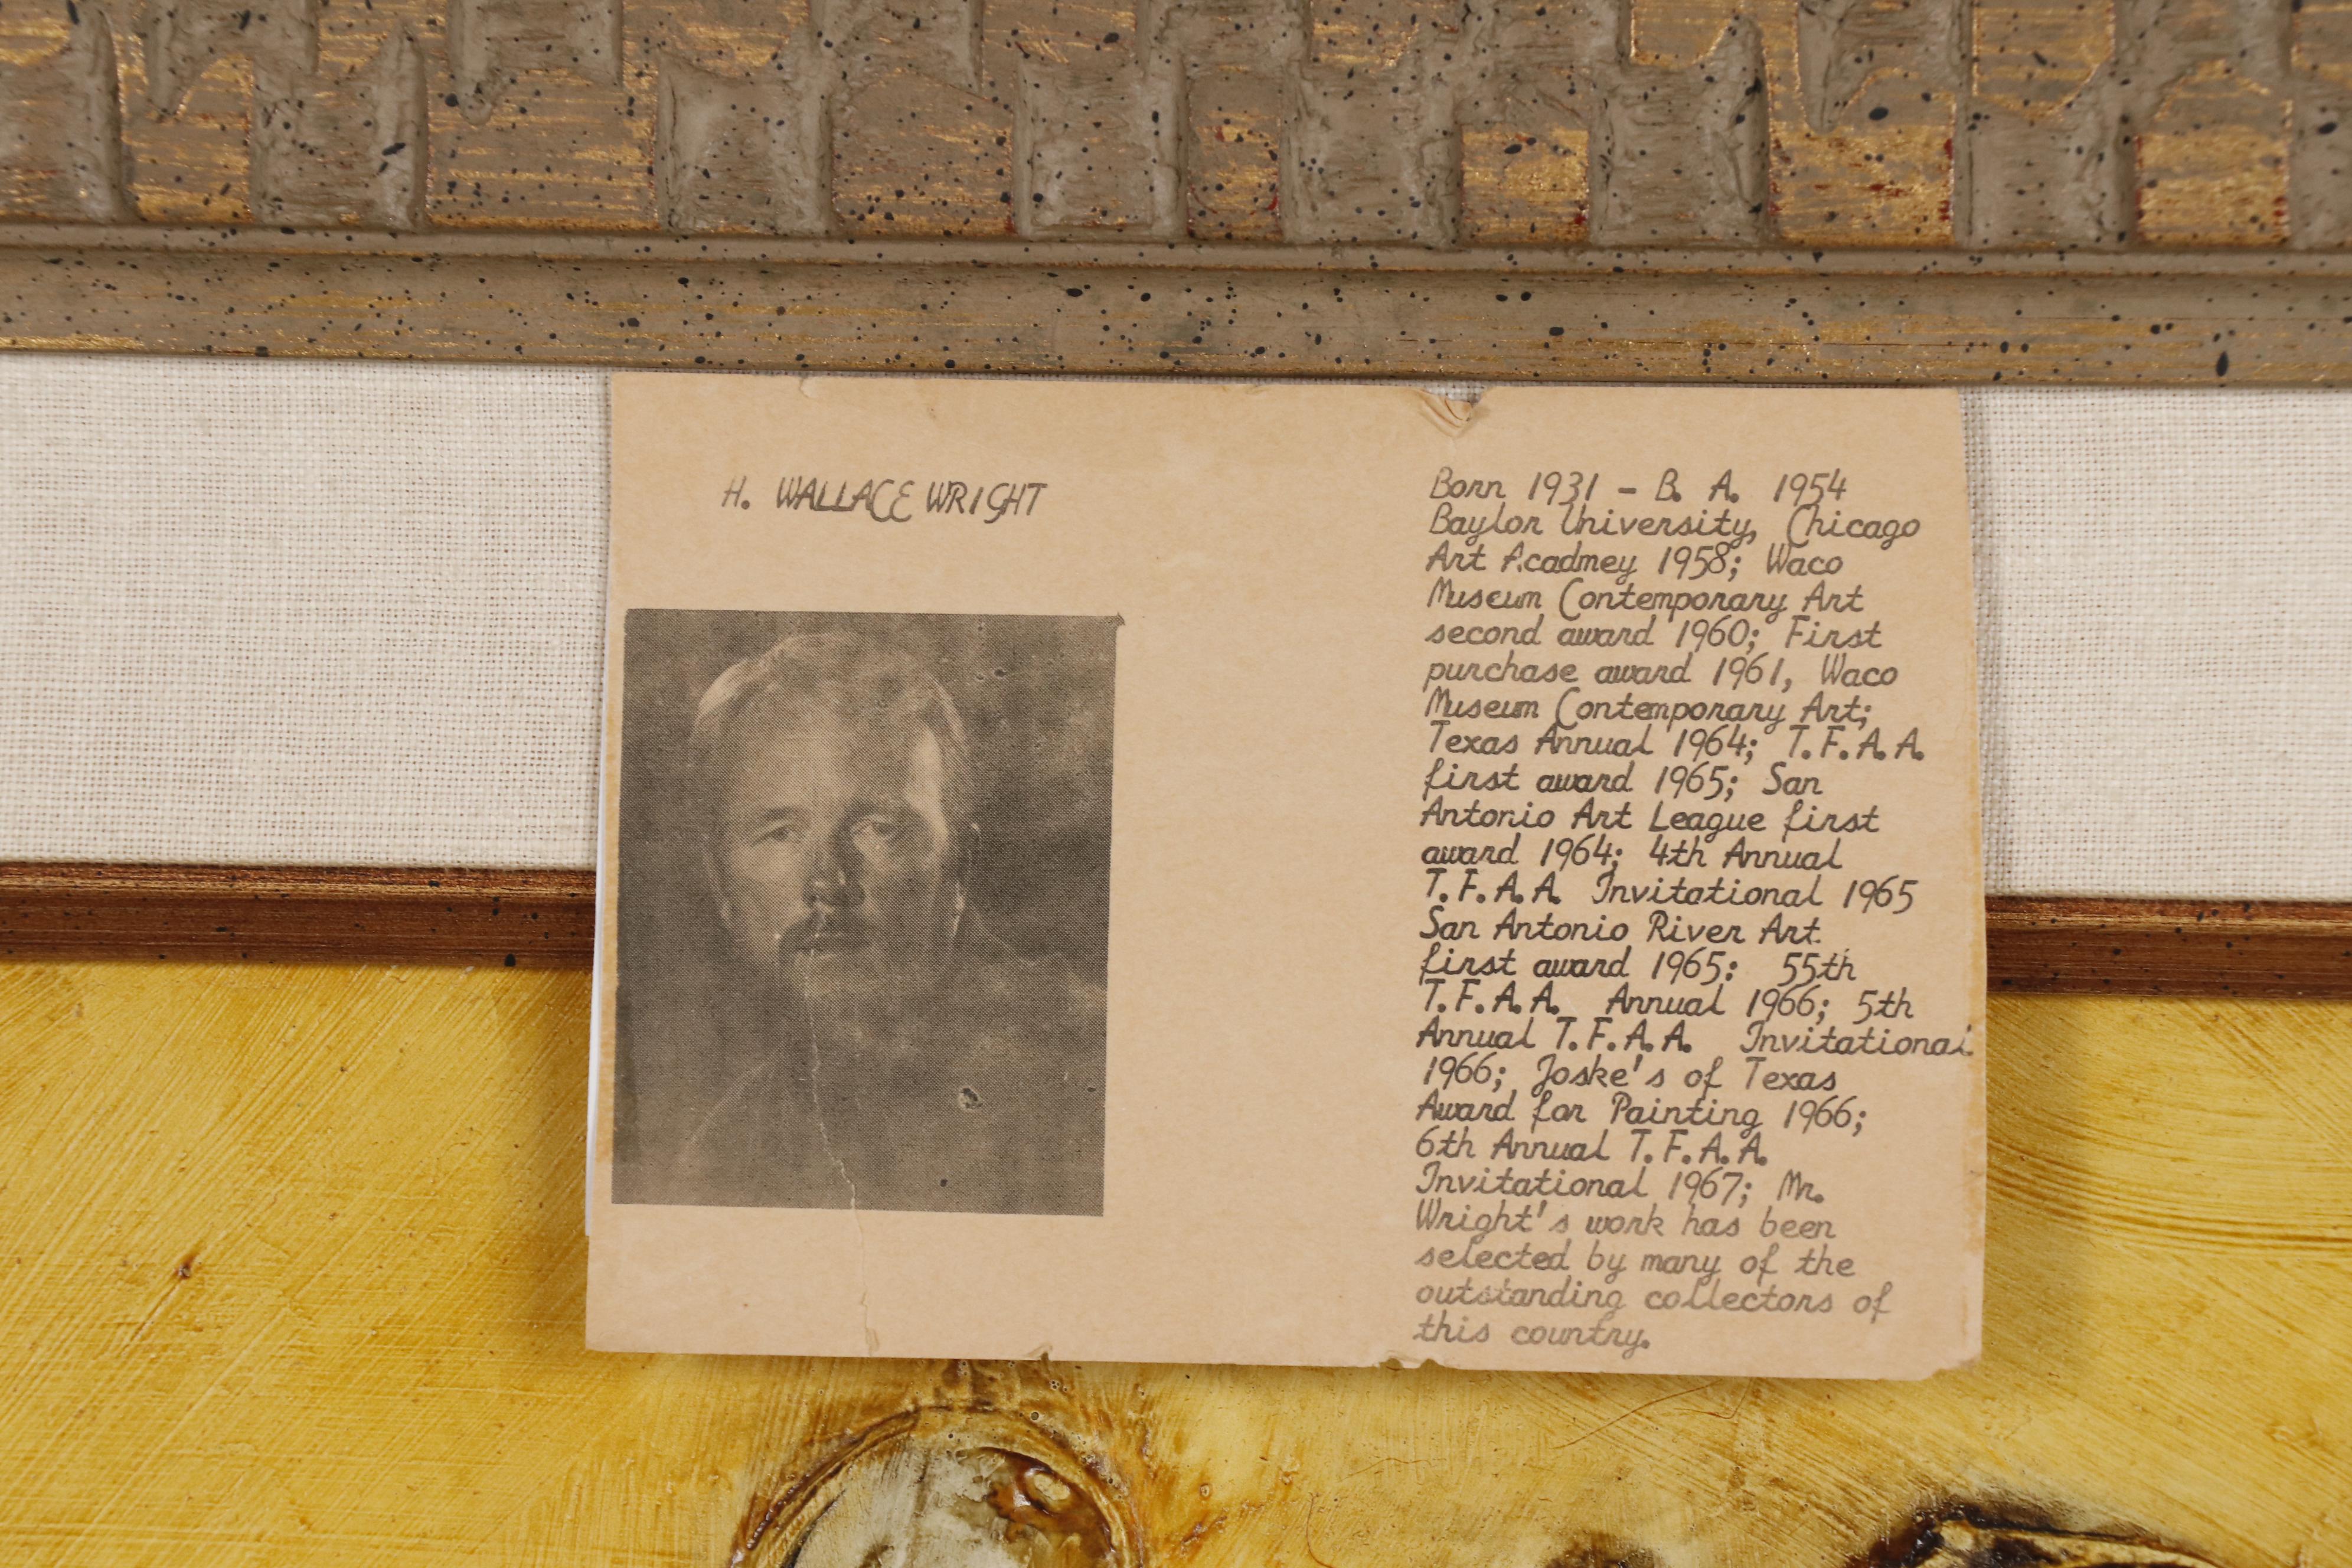 H. WALLACE WRIGHT
Born 1931 - B. A. 1954
Baylor University, Chicago
Art Acadmey 1958; Waco
Museum Contemporary Art
second award 1960; First
purchase award 1961, Waco
Museum Contemporary Art;
Texas Annual 1964; T.F.A.A.
first award 1965; San
Antonio Art League first
award 1964; 4th Annual
T.F.A.A. Invitational 1965
San Antonio River Art
first award 1965: 55th
T.F.A.A. Annual 1966; 5th
Annual T.F.A.A. Invitational
1966; Joske's of Texas
Award for Painting 1966;
6th Annual T.F.A.A.
Invitational 1967; Mr.
Wright's work has been
selected by many of the
outstanding collectors of
this country.